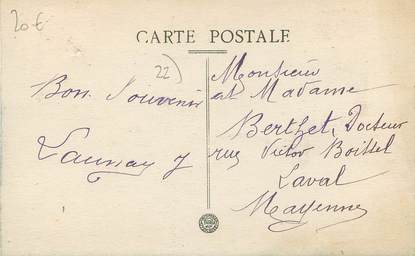 20€
CARTE POSTALE
22)
Bon Souvenir
Launay
Monsieur
et Madame
Berthet, Docteur
7 rue Victor Boissel
Laval
Mayenne